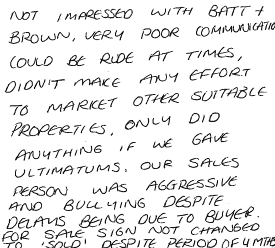 NOT IMPRESSED WITH BATT +
BROWN, VERY POOR COMMUNICATIO
COULD BE RUDE AT TIMES,
DIDN'T MAKE ANY EFFORT
TO MARKET OTHER SUITABLE
PROPERTIES, ONLY DID
ANYTHING IF WE GAVE
ULTIMATUMS. OUR SALES
PERSON WAS AGGRESSIVE
AND BULLYING DESPITE
DELAYS BEING DUE TO BUYER.
FOR SALE SIGN NOT CHANGED
TO 'SOLD' DESPITE PERIOD OF 4 MTHS